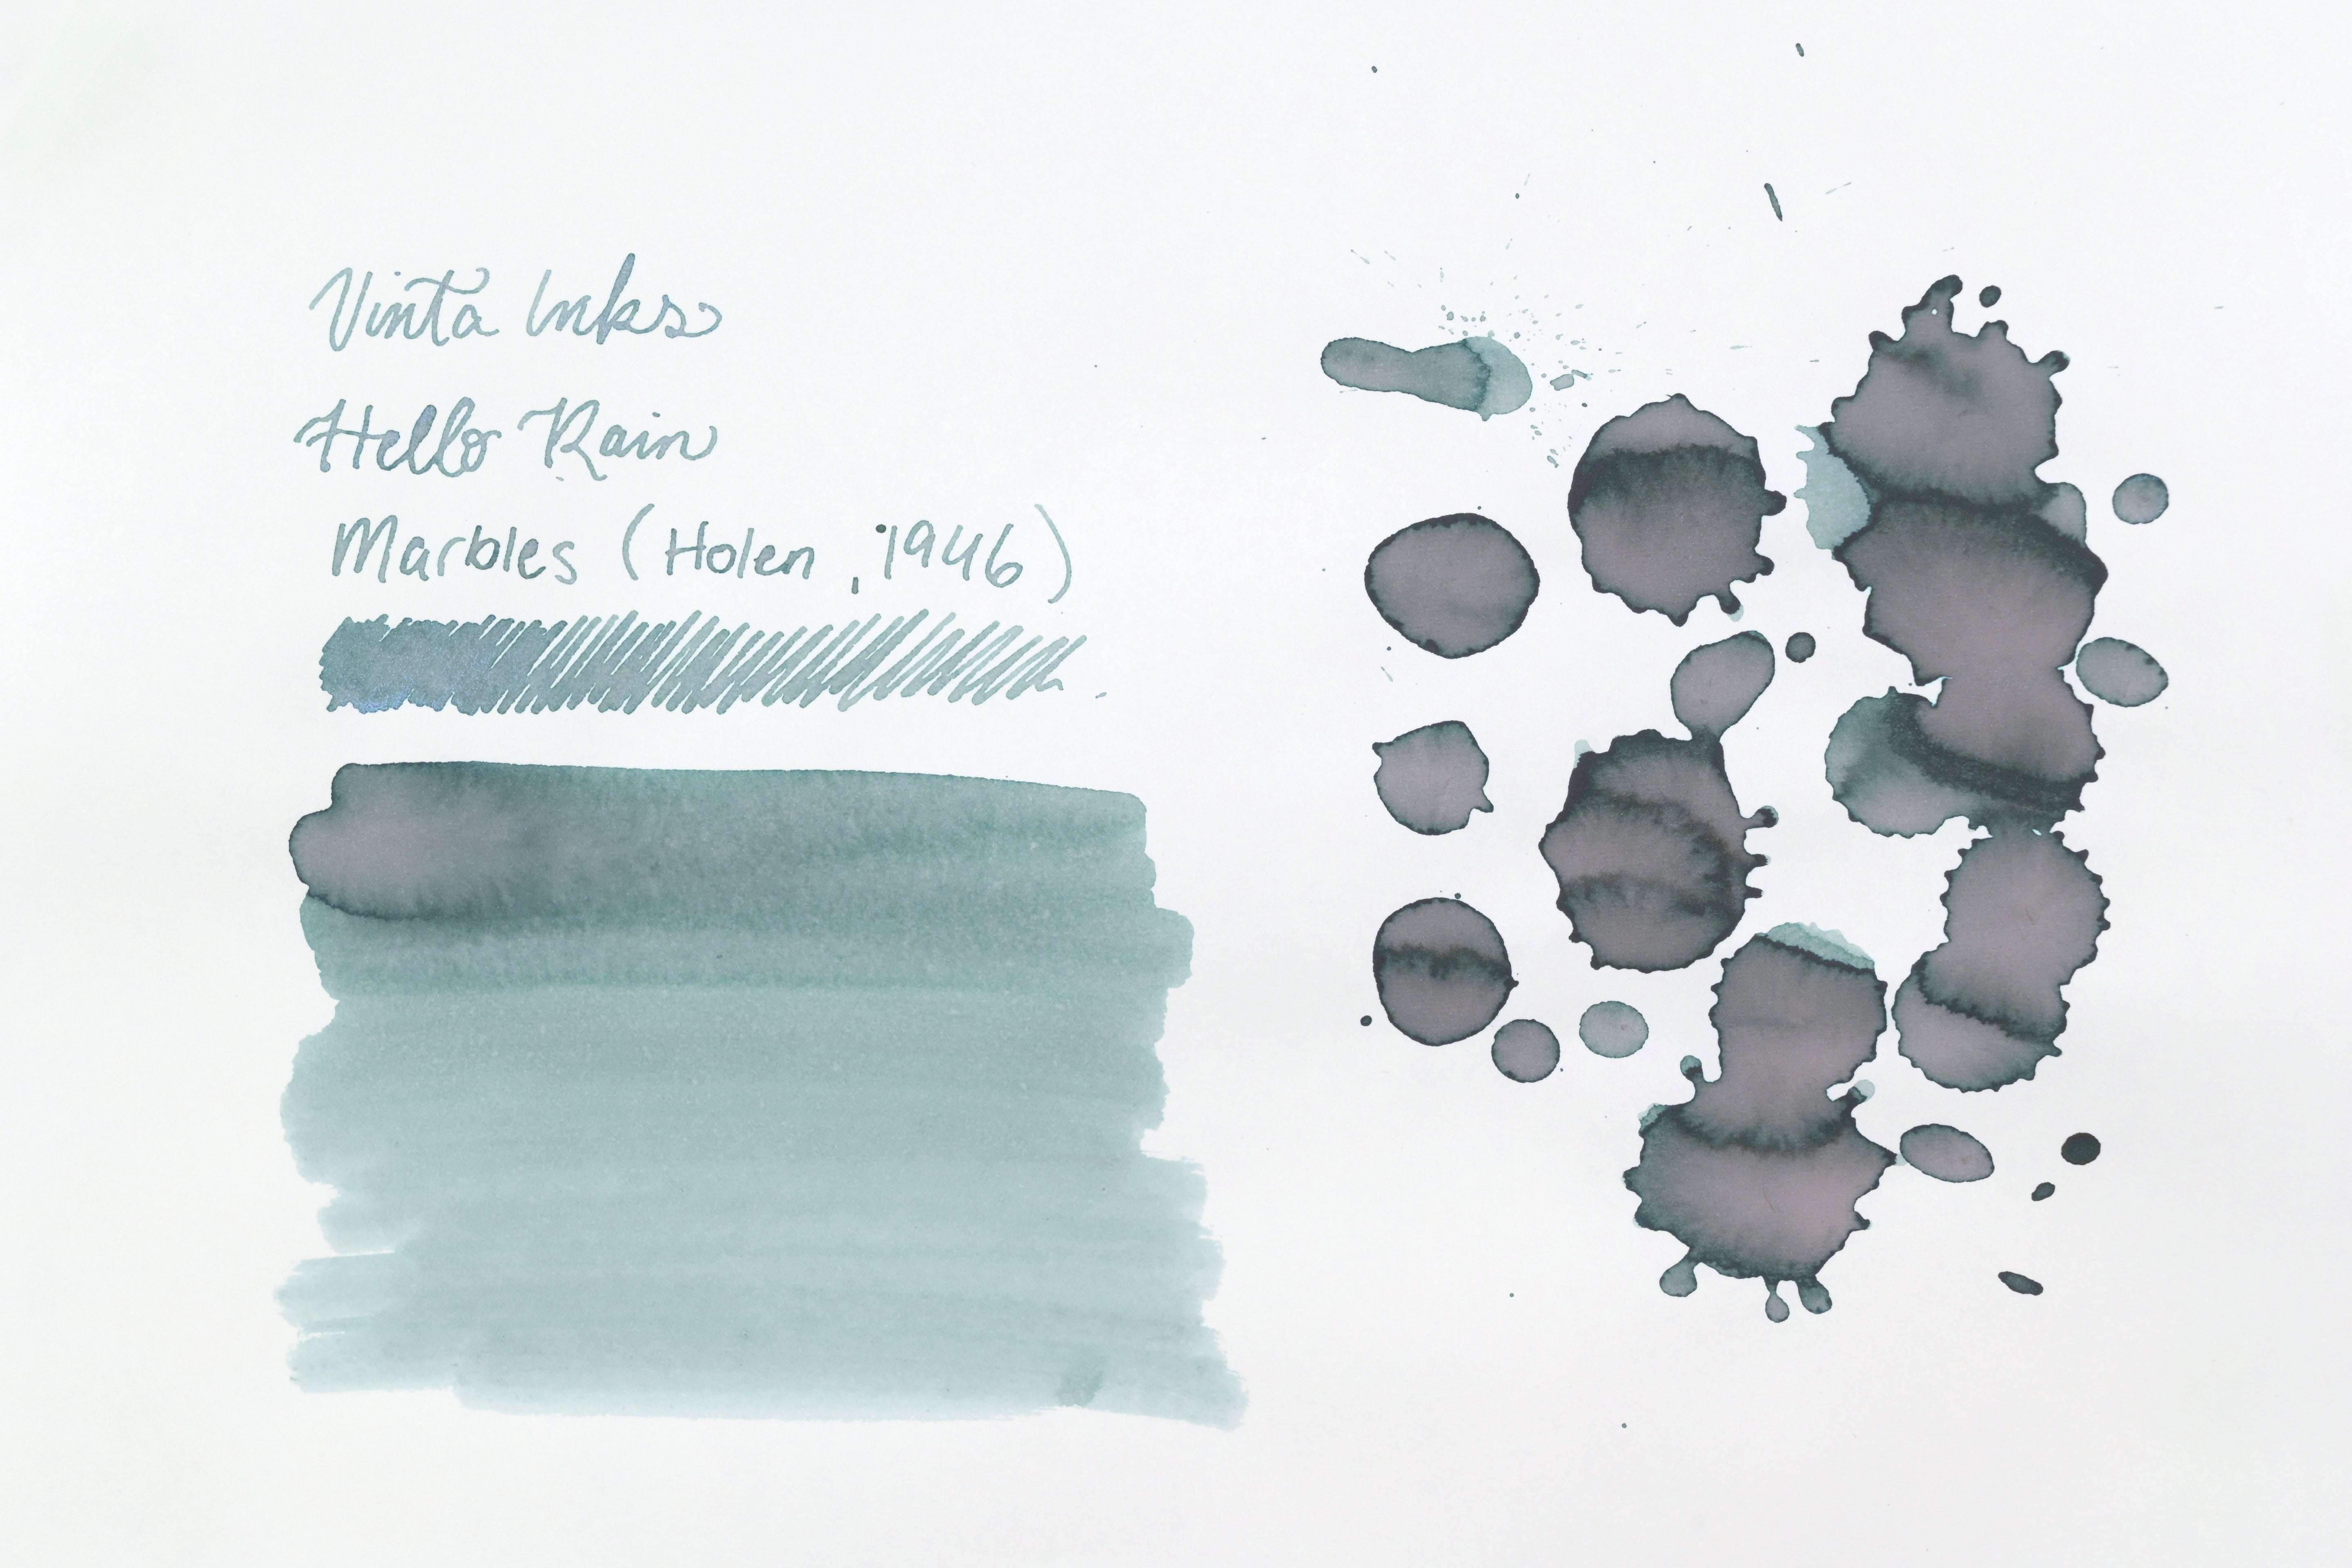 Vinta Inks
Hello Rain
Marbles (Holen, 1946)